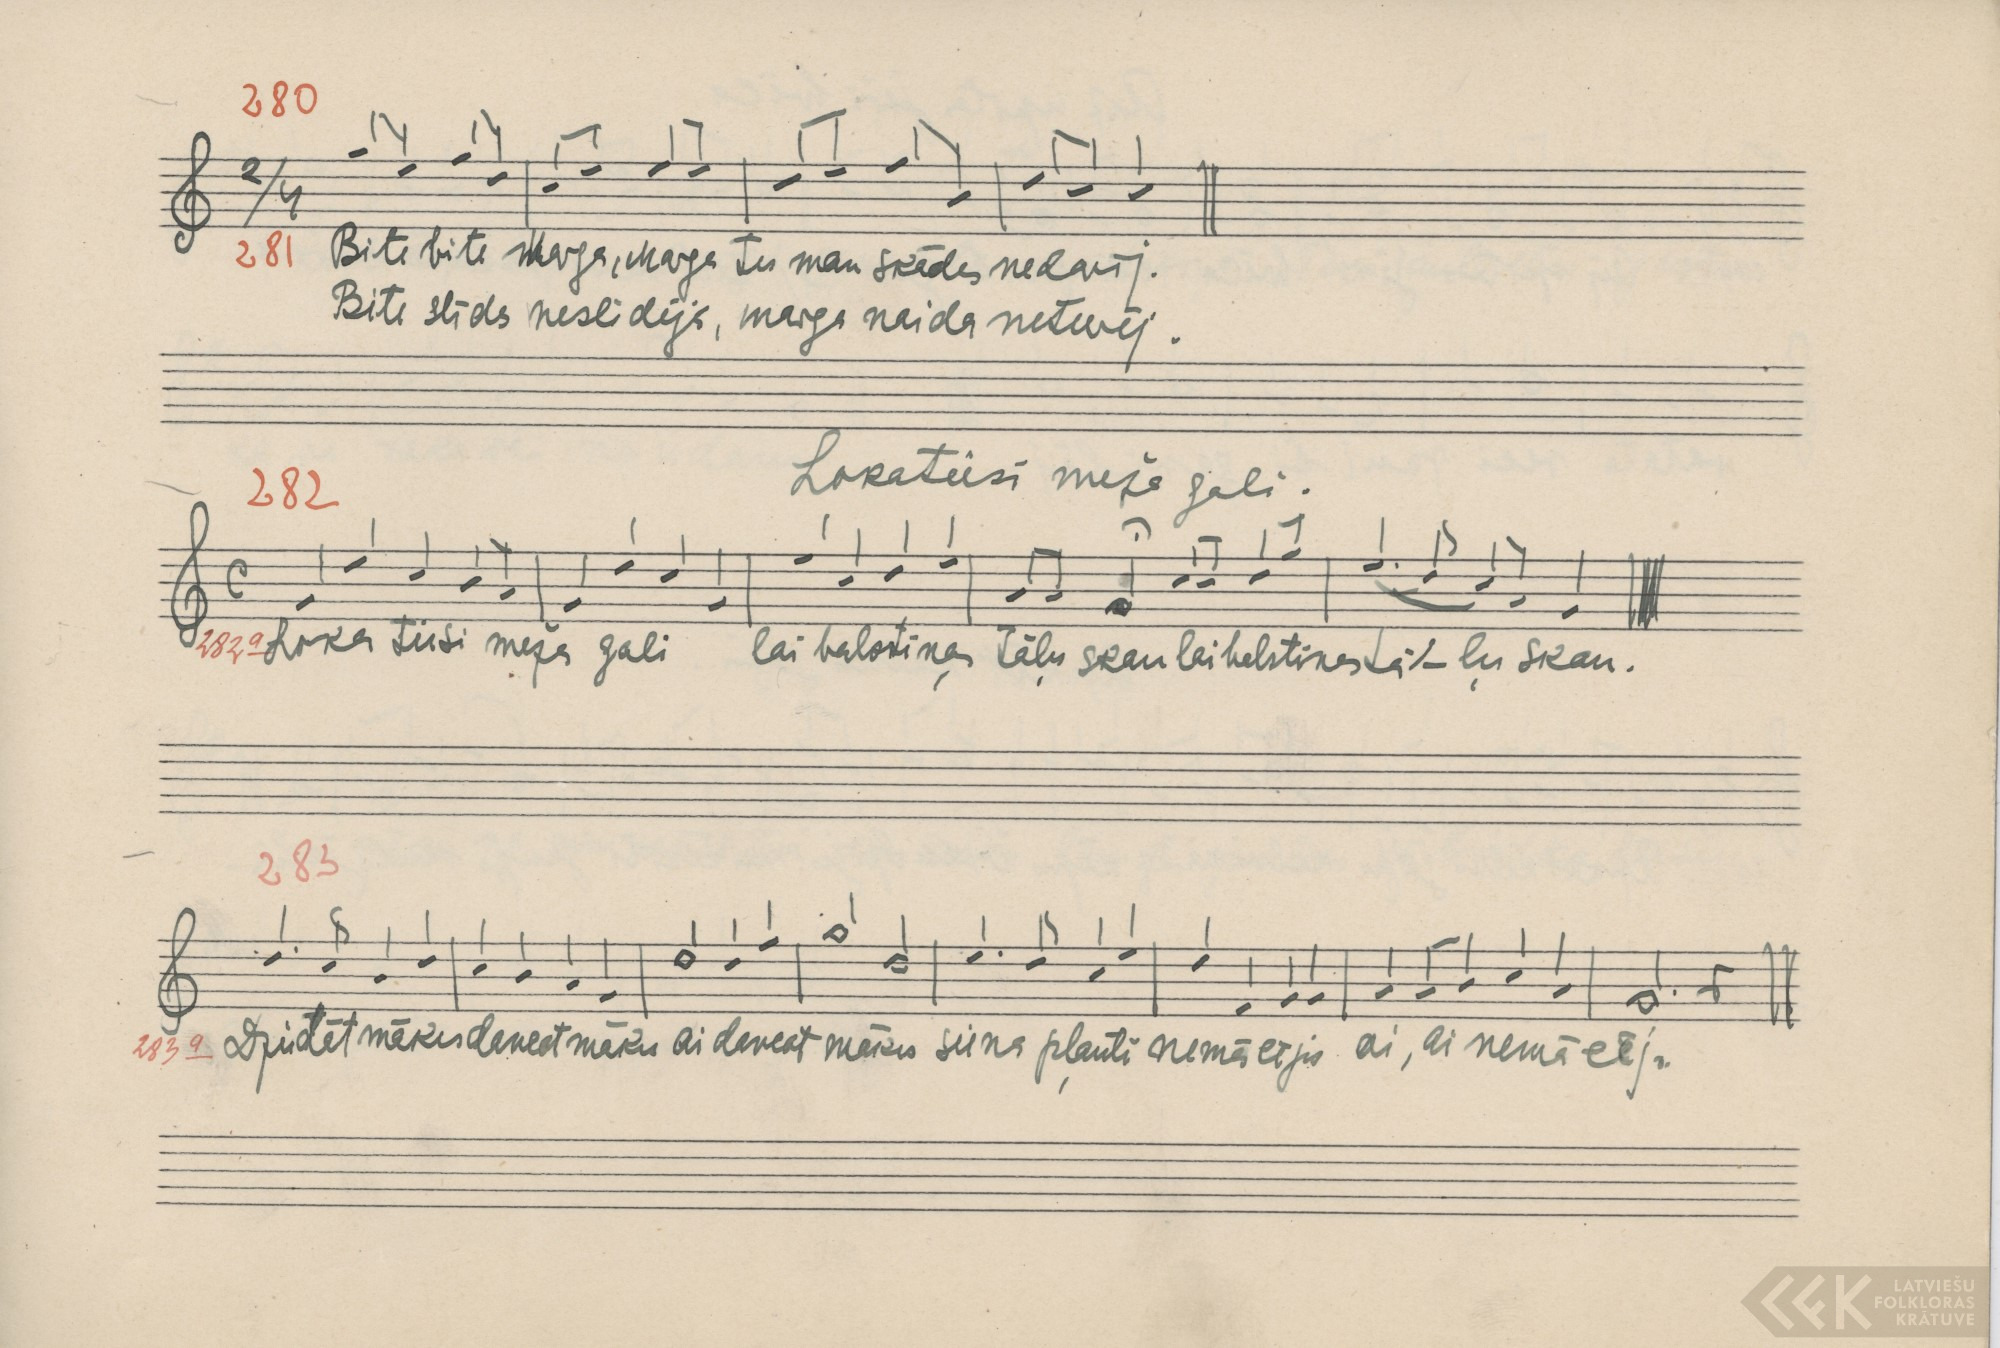 280
2/4
281 Bite bite Marga, marga tu man skādes nedarij.
Bite slīda neslidēja, marga naida neturēj.
Lokatiisi meža gali.
282
C
282a Loka tiisi meža gali lai balstiņas tāļu skan lai balstinas tā-ļu skan.
283
283a Dziedāt māku dancot māku ai dancot māku siena pļauti nemācējis ai, ai nemācēj.
LATVIEŠU
FOLKLORAS
KRĀTUVE